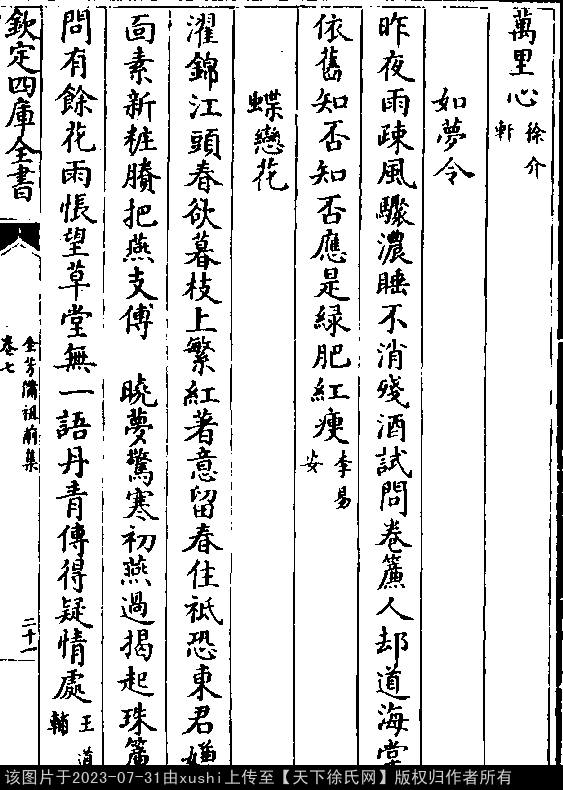 萬里心徐介軒
如夢令
昨夜雨疎風驟濃睡不消殘酒試問卷簾人却道海棠
依舊知否知否應是緑肥紅痩李易安
蝶戀花
濯錦江頭春欲暮枝上繁紅著意留春住祗恐東君
面素新粧賸把燕支傅 曉夢驚寒初燕過揭起珠簾
問有餘花雨悵望草堂無一語丹青傳得疑情處王道輔
欽定四庫全書
全芳備祖前集
卷七
二十一
该图片于2023-07-31由xushi上传至【天下徐氏网】版权归作者所有